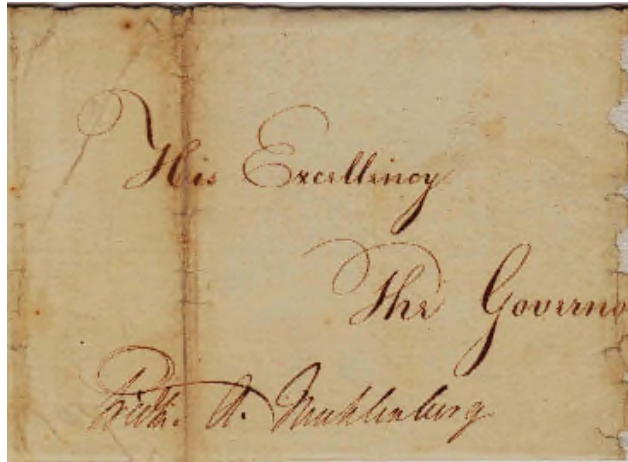 His Excellency
The Governo
Fredk. A. Muhlenberg